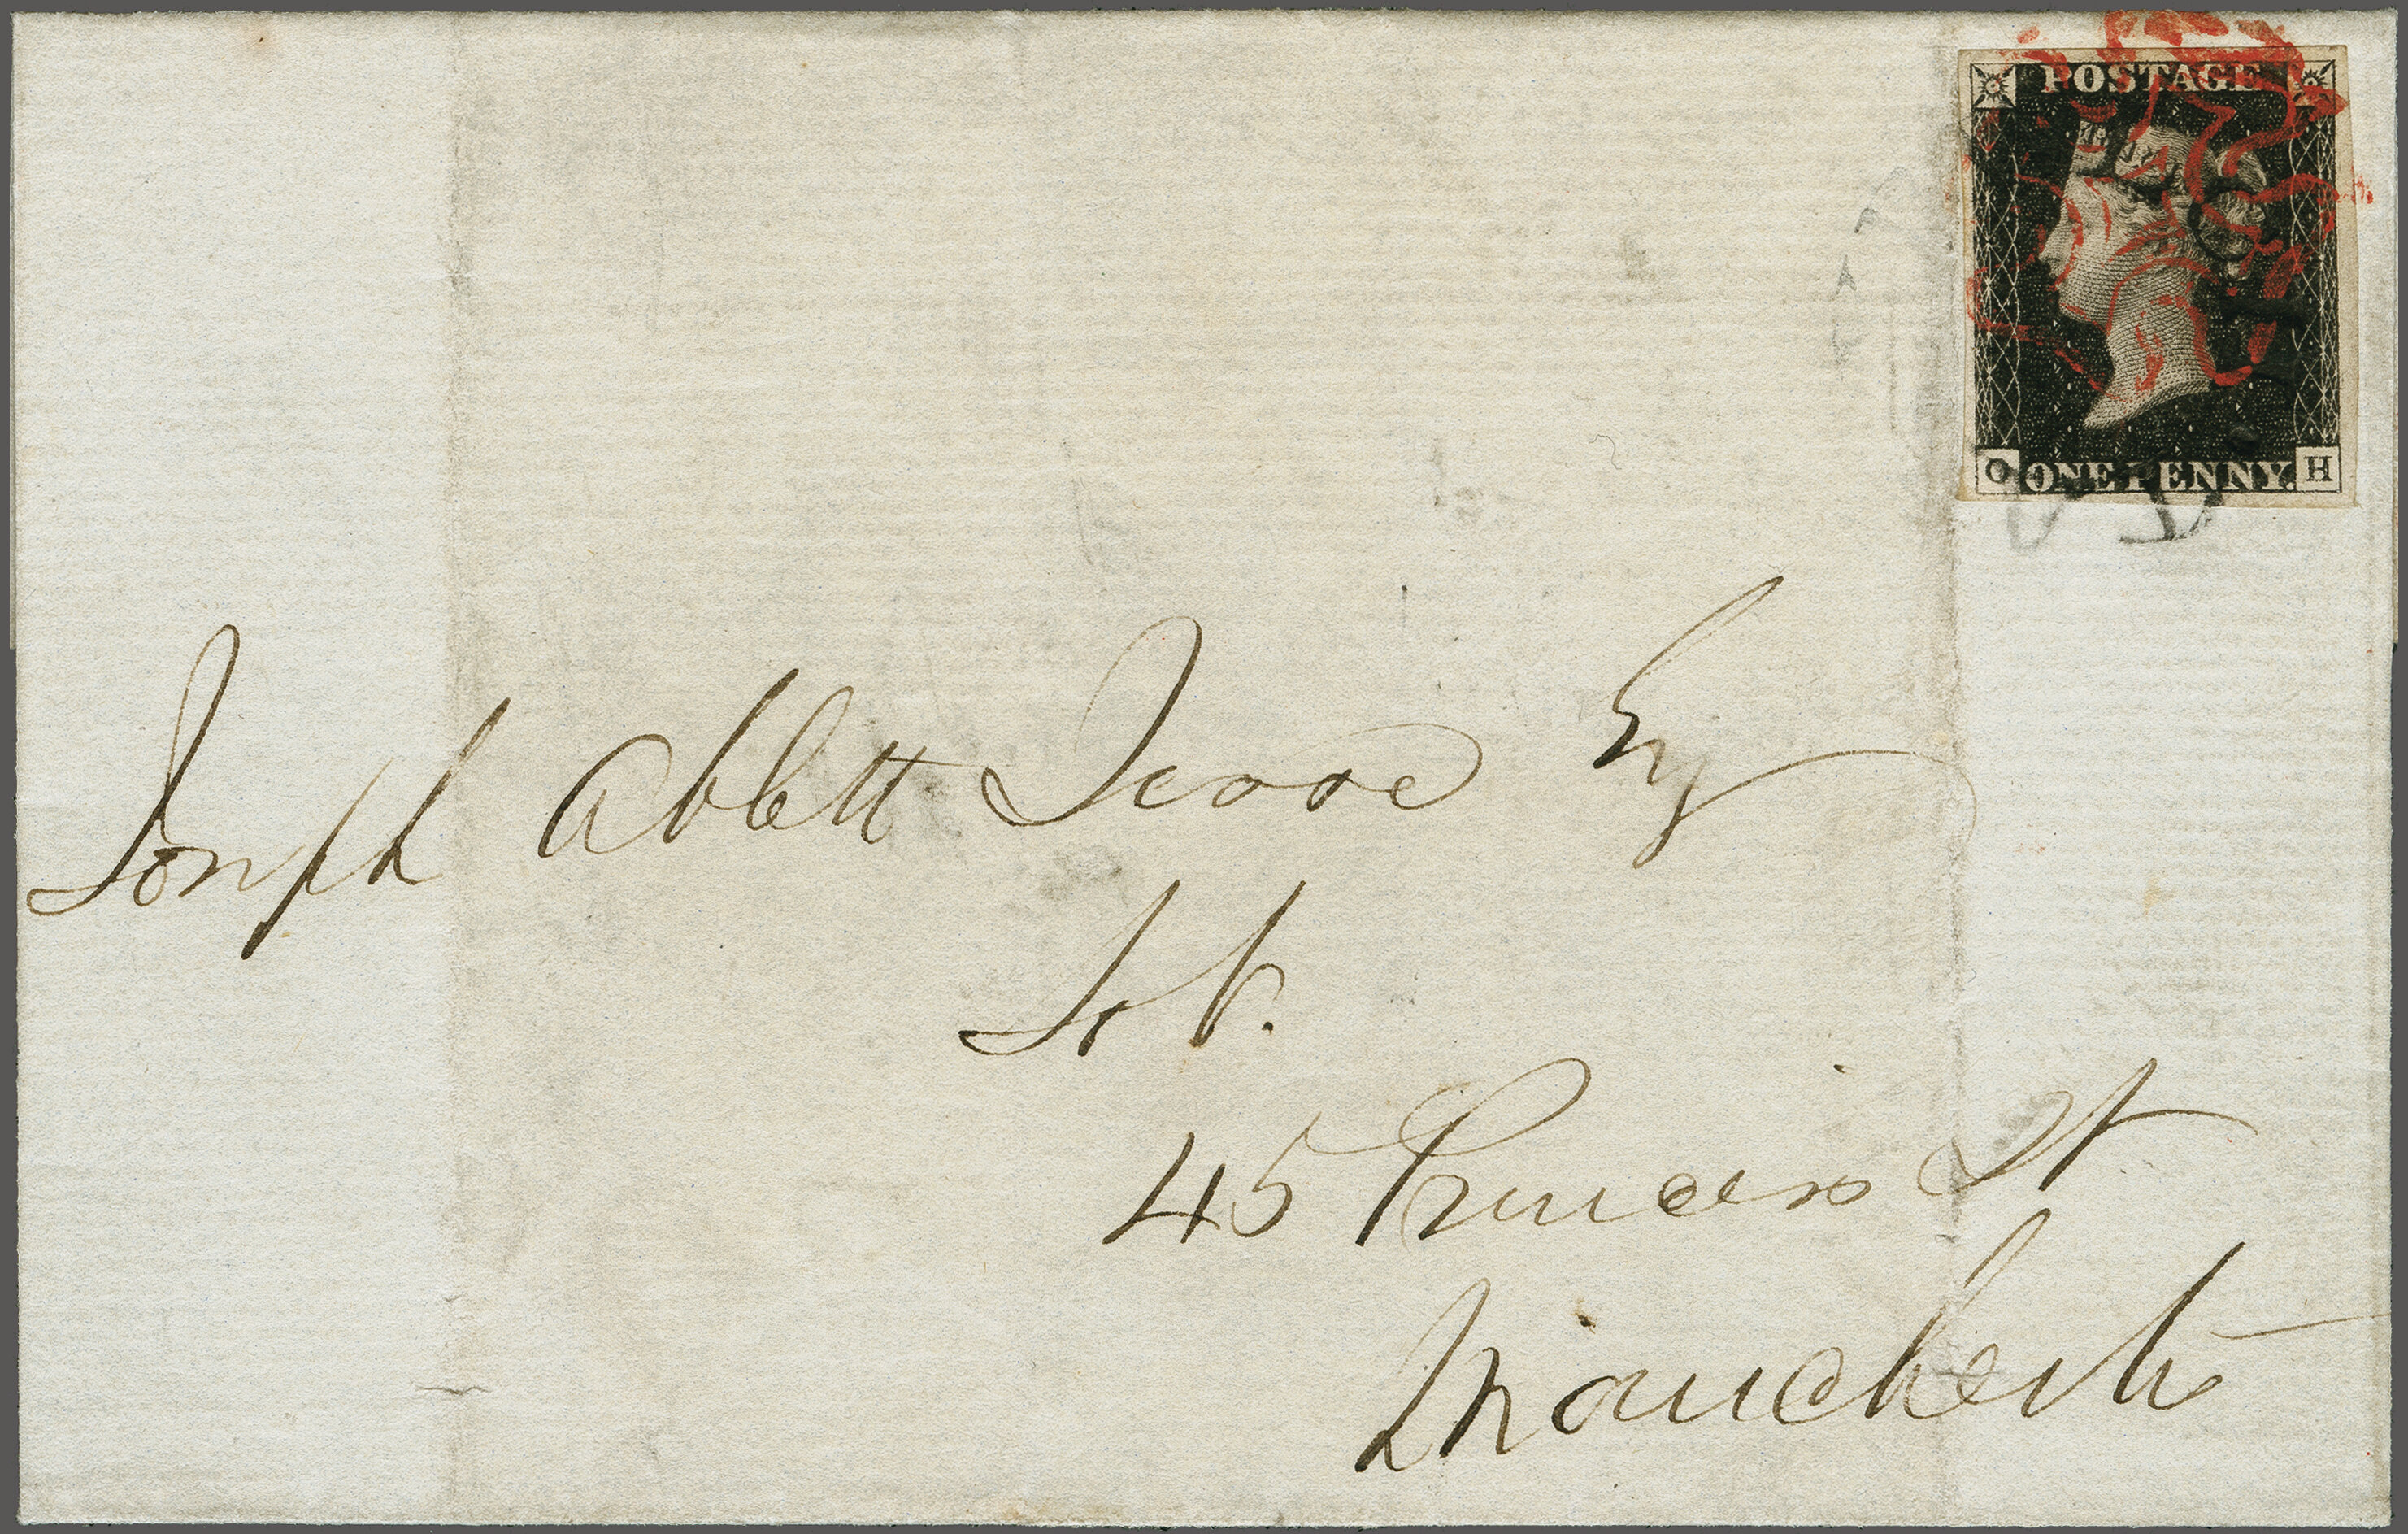 POSTAGE
O ONE PENNY. H
Joseph Ablett Jesse Esq
45 Princess St
Manchester